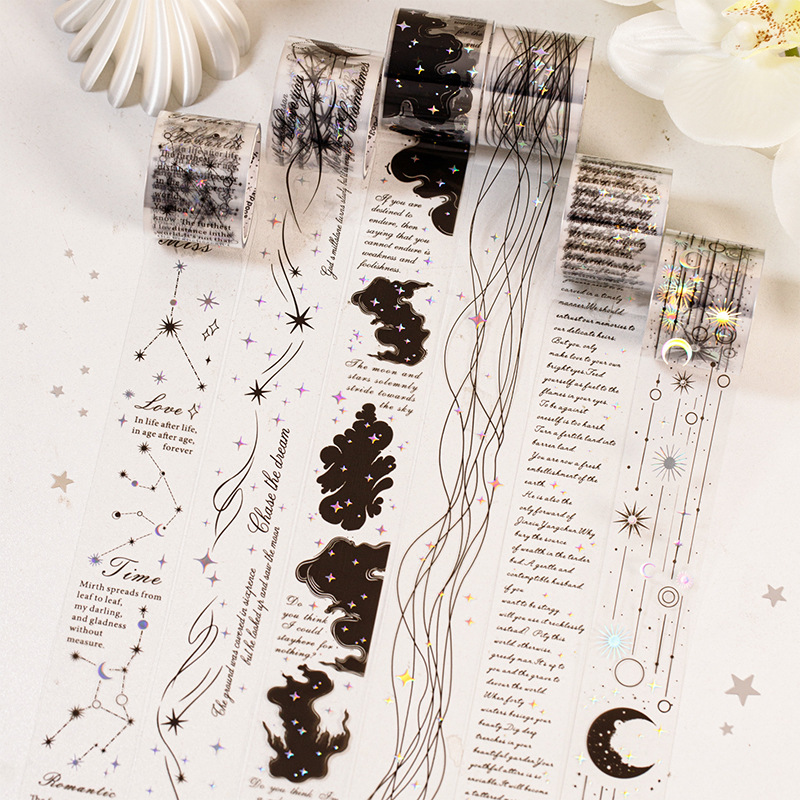 Miss
Love
In life after life,
in age after age,
forever
Time
Mirth spreads from
leaf to leaf,
my darling,
and gladness
without
measure.
Romantic
Love you
Sometimes
God's millstone turns slowly
Chase the dream
The ground was covered in sixpence
but he looked up and saw the moon
If you are
destined to
endure, then
saying that you
cannot endure is
weakness and
foolishness.
The moon and
stars solemnly
stride towards
the sky
Do
you think
I could
stayhere for
nothing?"
Do you think
carved in a timely
manner.We should
entrust our memories to
our delicate heirs.
But you, only
make love to your own
bright eyes. Feed
yourself as fuel to the
flames in your eyes
To be against
oneself is too harsh
Turn a fertile land into
barren land.
You are now a fresh
embellishment of the
earth.
He is also the
only forward of
Jinxiu Yangchun. Why
bury the source
of wealth in the tender
bud. A gentle and
contemptible husband.
If you
want to be stingy
will you use it recklessly
instead? Pity this
world, otherwise
greedy man. It's up to
you and the grave to
devour the world.
When forty
winters besiege your
beauty. Dig deep
trenches in your
beautiful garden. Your
youthful attire is so
enviable. It will become
a tattered